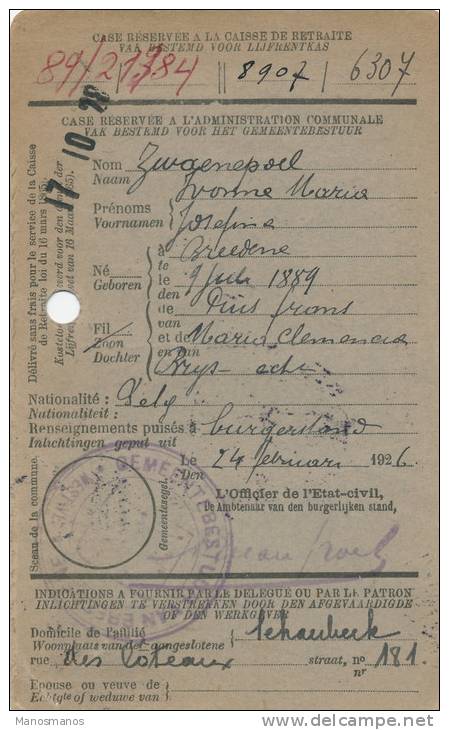 CASE RÉSERVÉE A LA CAISSE DE RETRAITE
VAK BESTEMD VOOR LIJFRENTKAS
8907 6307
17 10 28
CASE RÉSERVÉE A L'ADMINISTRATION COMMUNALE
VAK BESTEMD VOOR HET GEMEENTEBESTUUR
Délivré sans frais pour le service de la Caisse
de Retraite (loi du 16 mars 1865).
Nom
Naam
Yvonne Maria
Prénoms
Voornamen
Josefina
à
te
Breedene
Né
Geboren
le
den
9 juli 1889
de
van
Pius Frans
Fil
Zoon
Dochter
et de
en van
Maria Clemencia
Nationalité :
Nationaliteit :
Belg
Renseignements puisés à
Inlichtingen geput uit
burgerstand
Le
Den
24 februari 1926.
Sceau de la commune.
Gemeentezegel.
GEMEENTEBESTUUR
L'Officier de l'Etat-civil,
De Ambtenaar van den burgerlijken stand,
INDICATIONS A FOURNIR PAR LE DÉLÉGUÉ OU PAR LE PATRON
INLICHTINGEN TE VERSTREKKEN DOOR DEN AFGEVAARDIGDE
OF DEN WERKGEVER
Domicile de l'affilié
Woonplaats van den aangeslotene
Schaerbeek
rue des Coteaux straat, no
nr
181.
Epouse ou veuve de
Echtgte of weduwe van
Manosmanos
www.delcampe.net